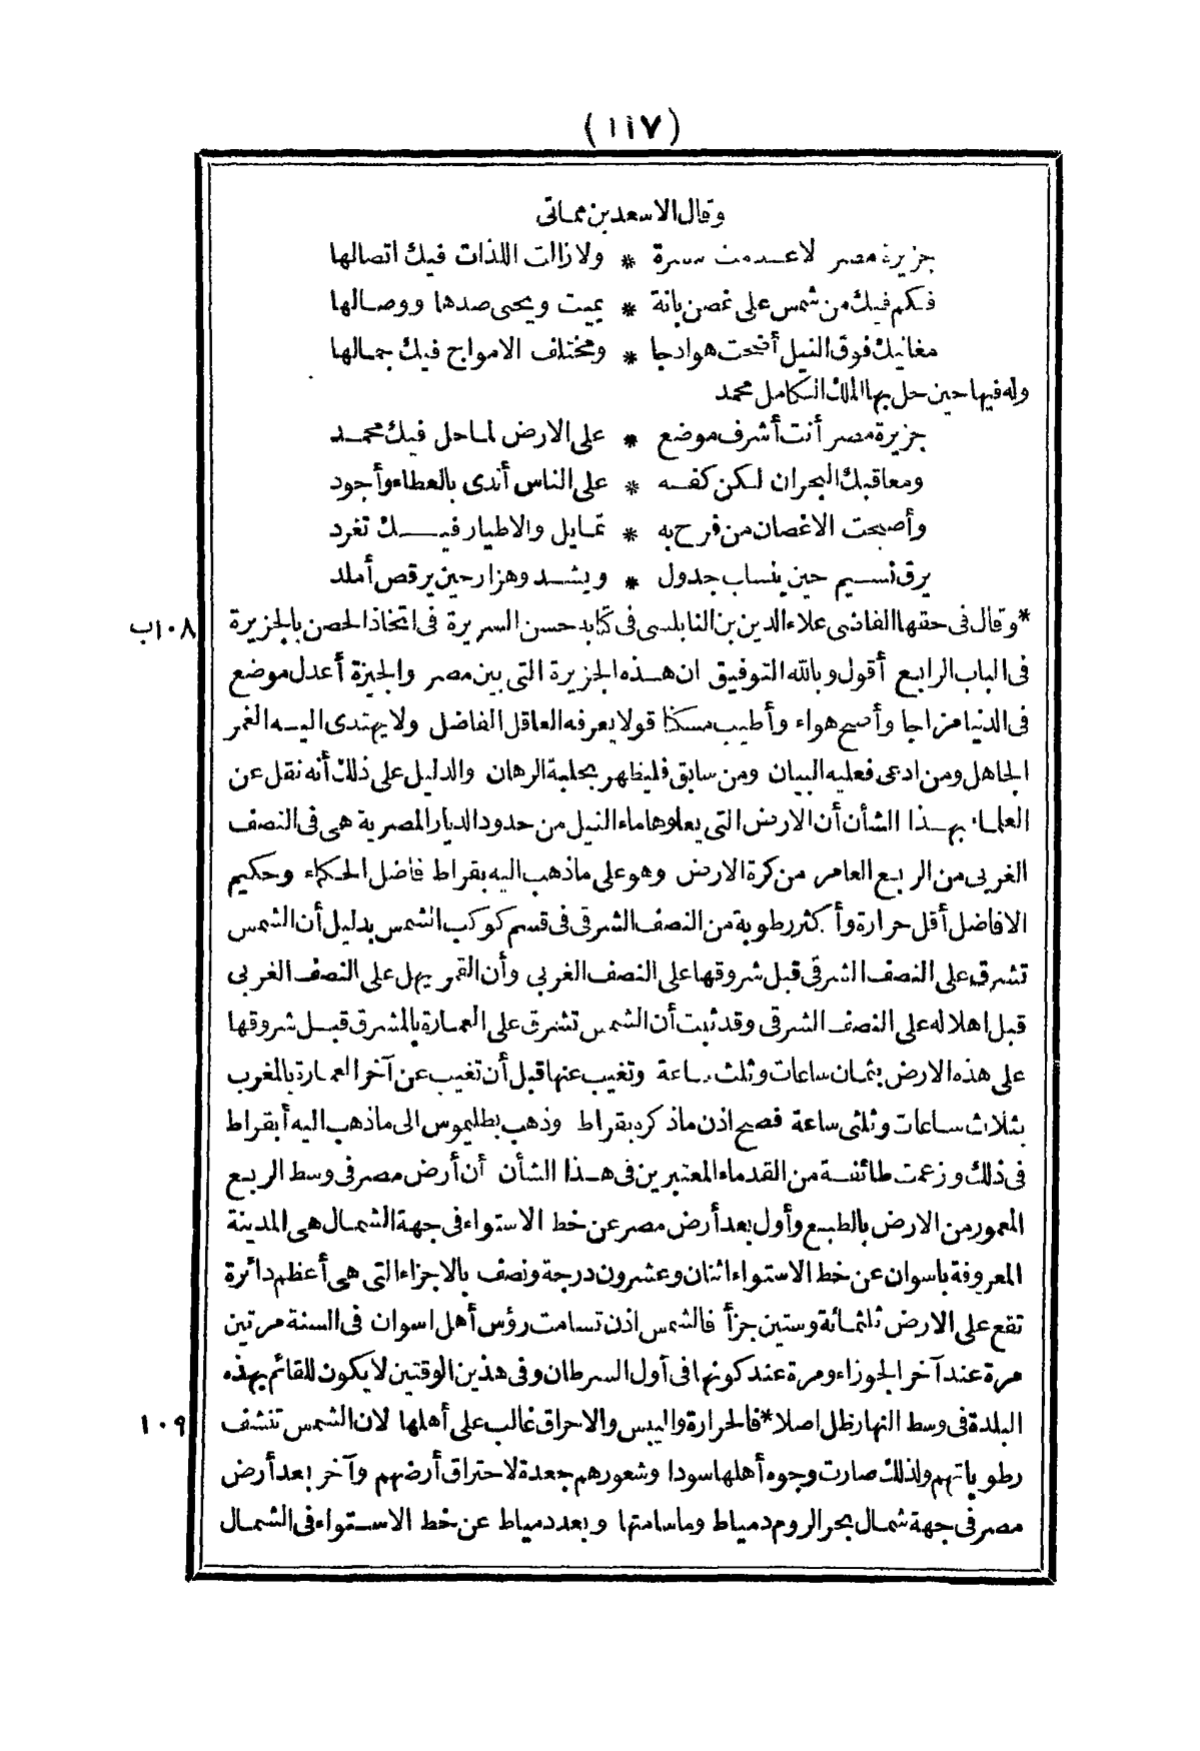 (١١٧)
وقال الاسعد بن مماتى
جزيرة مصر لاعدمت مسرة * ولا زالت اللذات فيك اتصالها
فكم فيك من شمس على غصن بانة * يميت ويحيى صدها ووصالها
مغانيك فوق النيل أضحت هوادجا * ومختلف الامواج فيك جمالها
وله فيها حين حل بها الملك الكامل محمد
جزيرة مصر أنت أشرف موضع * على الارض لما حل فيك محمد
ومعاقبك البحران لكن كفه * على الناس أندى بالعطاء وأجود
وأصبحت الاغصان من فرح به * تمايل والاطيار فيك تغرد
يرق نسيم حين ينساب جدول * ويشدو هزار حين يرقص أملد
* وقال فى حقها القاضى علاء الدين بن النابلسى فى كتابه حسن السريرة فى اتخاذ الحصن بالجزيرة ١٠٨ب
فى الباب الرابع أقول وبالله التوفيق ان هذه الجزيرة التى بين مصر والجيزة أعدل موضع
فى الدنيا مزاجا وأصح هواء وأطيب مسكنا قولا يعرفه العاقل الفاضل ولا يهتدى اليه الغمر
الجاهل ومن ادعى فعليه البيان ومن سابق فليظهر بحلبة الرهان والدليل على ذلك أنه نقل عن
العلماء بهذا الشأن أن الارض التى يعلوها ماء النيل من حدود الديار المصرية هى فى النصف
الغربى من الربع العامر من كرة الارض وهو على ما ذهب اليه بقراط فاضل الحكماء وحكيم
الافاضل أقل حرارة وأكثر رطوبة من النصف الشرقى فى قسم كوكب الشمس بدليل أن الشمس
تشرق على النصف الشرقى قبل شروقها على النصف الغربى وأن القمر يهل على النصف الغربى
قبل اهلاله على النصف الشرقى وقد ثبت أن الشمس تشرق على العمارة بالمشرق قبل شروقها
على هذه الارض بثمان ساعات وثلث ساعة وتغيب عنها قبل أن تغيب عن آخر العمارة بالمغرب
بثلاث ساعات وثلثى ساعة فصح اذن ماذكره بقراط وذهب بطليموس الى ماذهب اليه أبقراط
فى ذلك وزعمت طائفة من القدماء المعتبرين فى هذا الشأن أن أرض مصر فى وسط الربع
المعمور من الارض بالطبع وأول بعد أرض مصر عن خط الاستواء فى جهة الشمال هى المدينة
المعروفة باسوان عن خط الاستواء اثنان وعشرون درجة ونصف بالاجزاء التى هى أعظم دائرة
تقع على الارض ثلثمائة وستين جزأ فالشمس اذن تسامت رؤس أهل اسوان فى السنة مرتين
مرة عند آخر الجوزاء ومرة عند كونها فى أول السرطان وفى هذين الوقتين لا يكون للقائم بهذه
البلدة فى وسط النهار ظل اصلا * فالحرارة واليبس والاحراق غالب على أهلها لان الشمس تنشف ١٠٩
رطوباتهم ولذلك صارت وجوه أهلها سودا وشعورهم جعدة لاحتراق أرضهم وآخر بعد أرض
مصر فى جهة شمال بحر الروم دمياط وما سامتها وبعد دمياط عن خط الاستواء فى الشمال